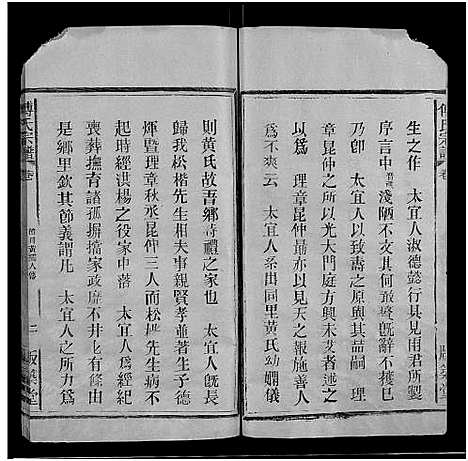 傅氏宗譜
卷
生之作　太宜人淑德懿行具見雨君所製
序言中晉箴淺陋不文其何敢贅旣辭不獲已
乃卽　太宜人以致壽之原與其喆嗣　理
章昆仲之所以光大門庭方興未艾者述之以
爲　理章昆勗亦以見天之報施善人
爲不爽云　太宜人系出同里黃氏幼嫺儀
則黃氏故吾鄉詩禮之家　太宜人旣長
歸我松楷先生相夫事親賢孝並著生子德
煇曁理章秋丞昆仲三人而松楷先生病不
起時經洪楊之役家中落　太宜人爲經紀
喪葬撫育諸孤摒擋家政靡不井井有餘由
是鄉里欽其節義謂凡　太宜人之所力爲
傅氏宗譜
卷
二
版築堂
版築堂